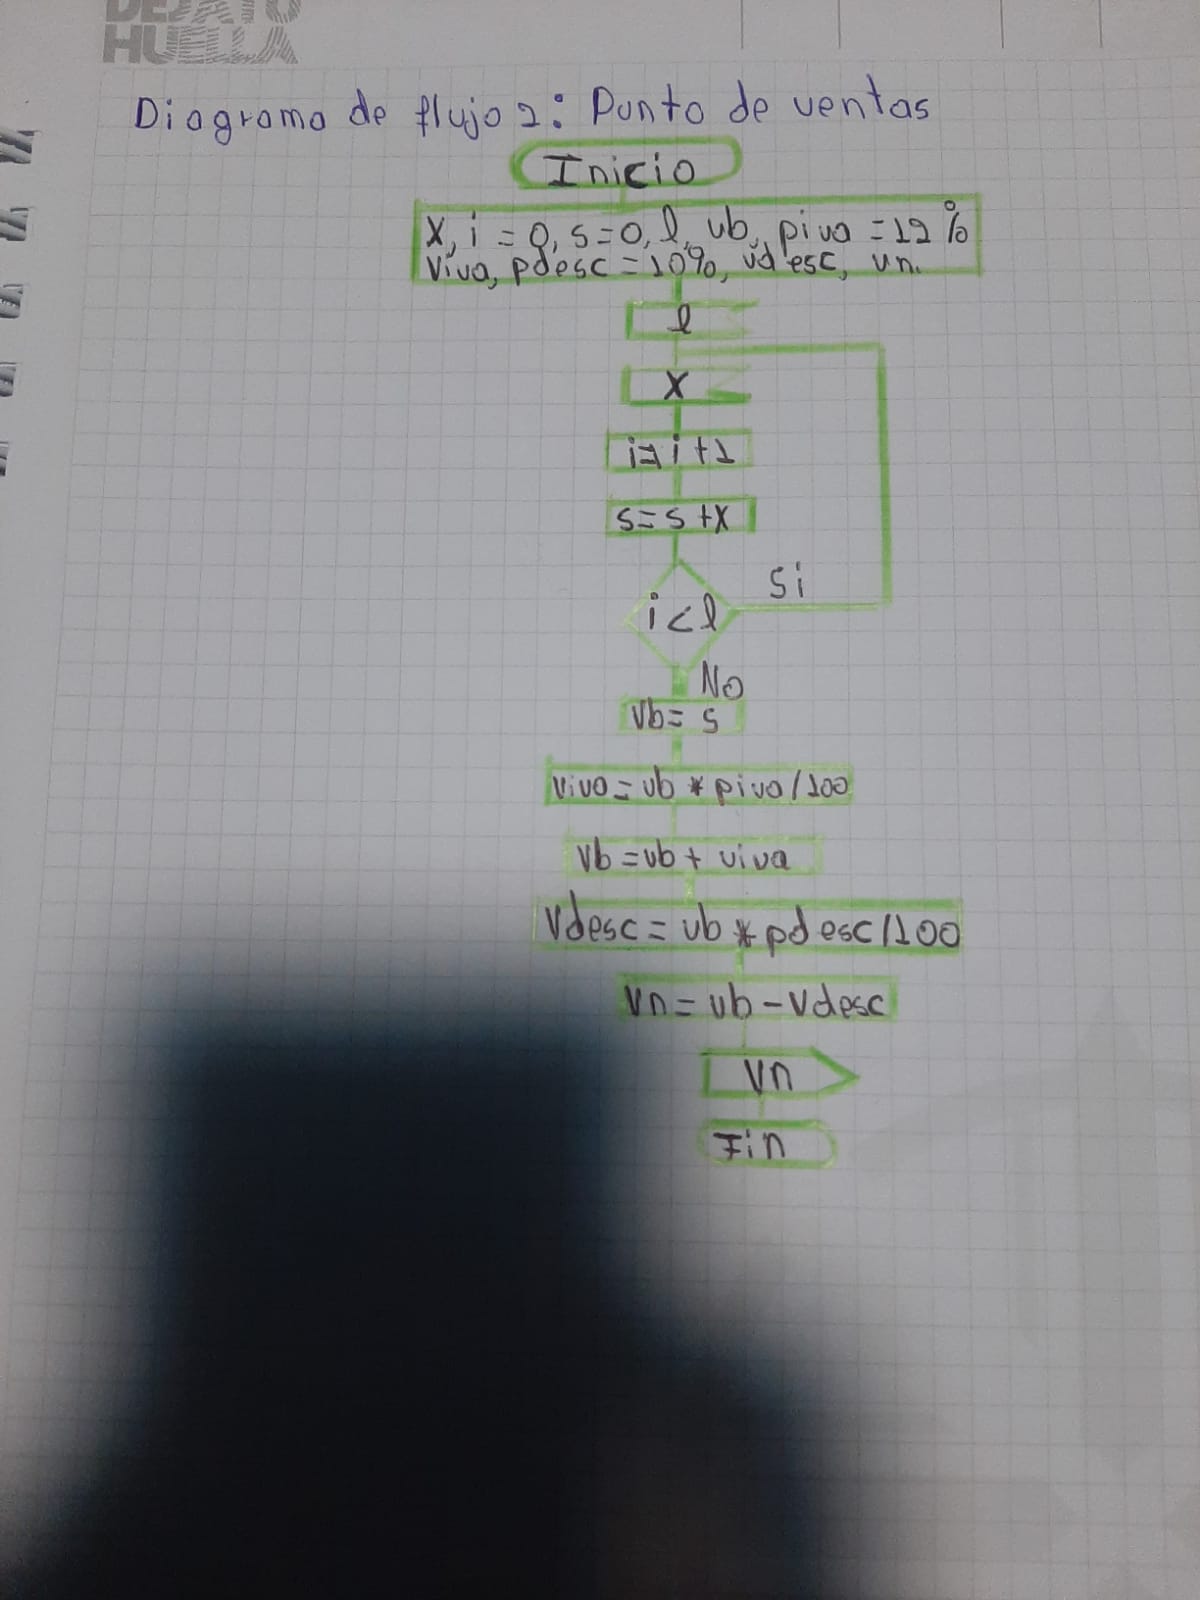 DEJA TU
HUELLA
Diagrama de flujo 2: Punto de ventas
Inicio
X, i = 0, s=0, l, vb, piva = 12%
Viva, pdesc = 10%, vdesc, vn.
l
X
i=i+1
s=s+X
i<l
Si
No
Vb= s
Viva=vb * piva/100
Vb=vb+ viva
Vdesc=vb * pdesc/100
Vn=vb-Vdesc
Vn
Fin